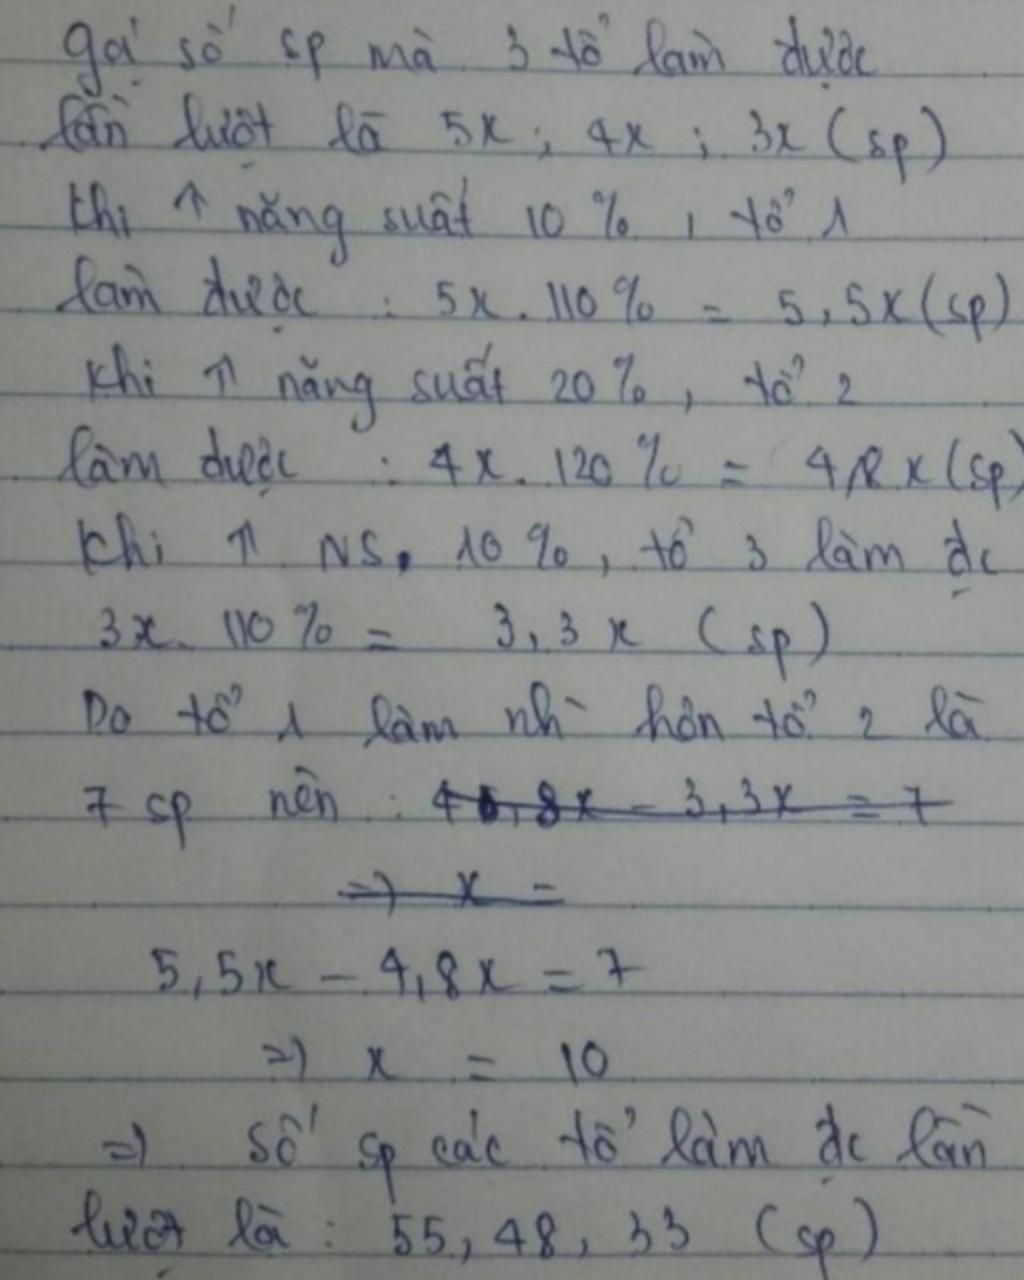 gọi số sp mà 3 tổ làm được
lần lượt là 5x ; 4x ; 3x (sp)
Khi ↑ năng suất 10 %, tổ 1
làm được : 5x . 110 % = 5,5x (sp)
Khi ↑ năng suất 20 %, tổ 2
làm được : 4x . 120 % = 4,8x (sp)
Khi ↑ NS. 10 %, tổ 3 làm đc
3x . 110 % = 3,3x (sp)
Do tổ 1 làm nhì hơn tổ 2 là
7 sp nên : 4,8x - 3,3x = 7
=> x =
5,5x - 4,8x = 7
=> x = 10
=> số sp các tổ làm đc lần
lượt là : 55, 48, 33 (sp)